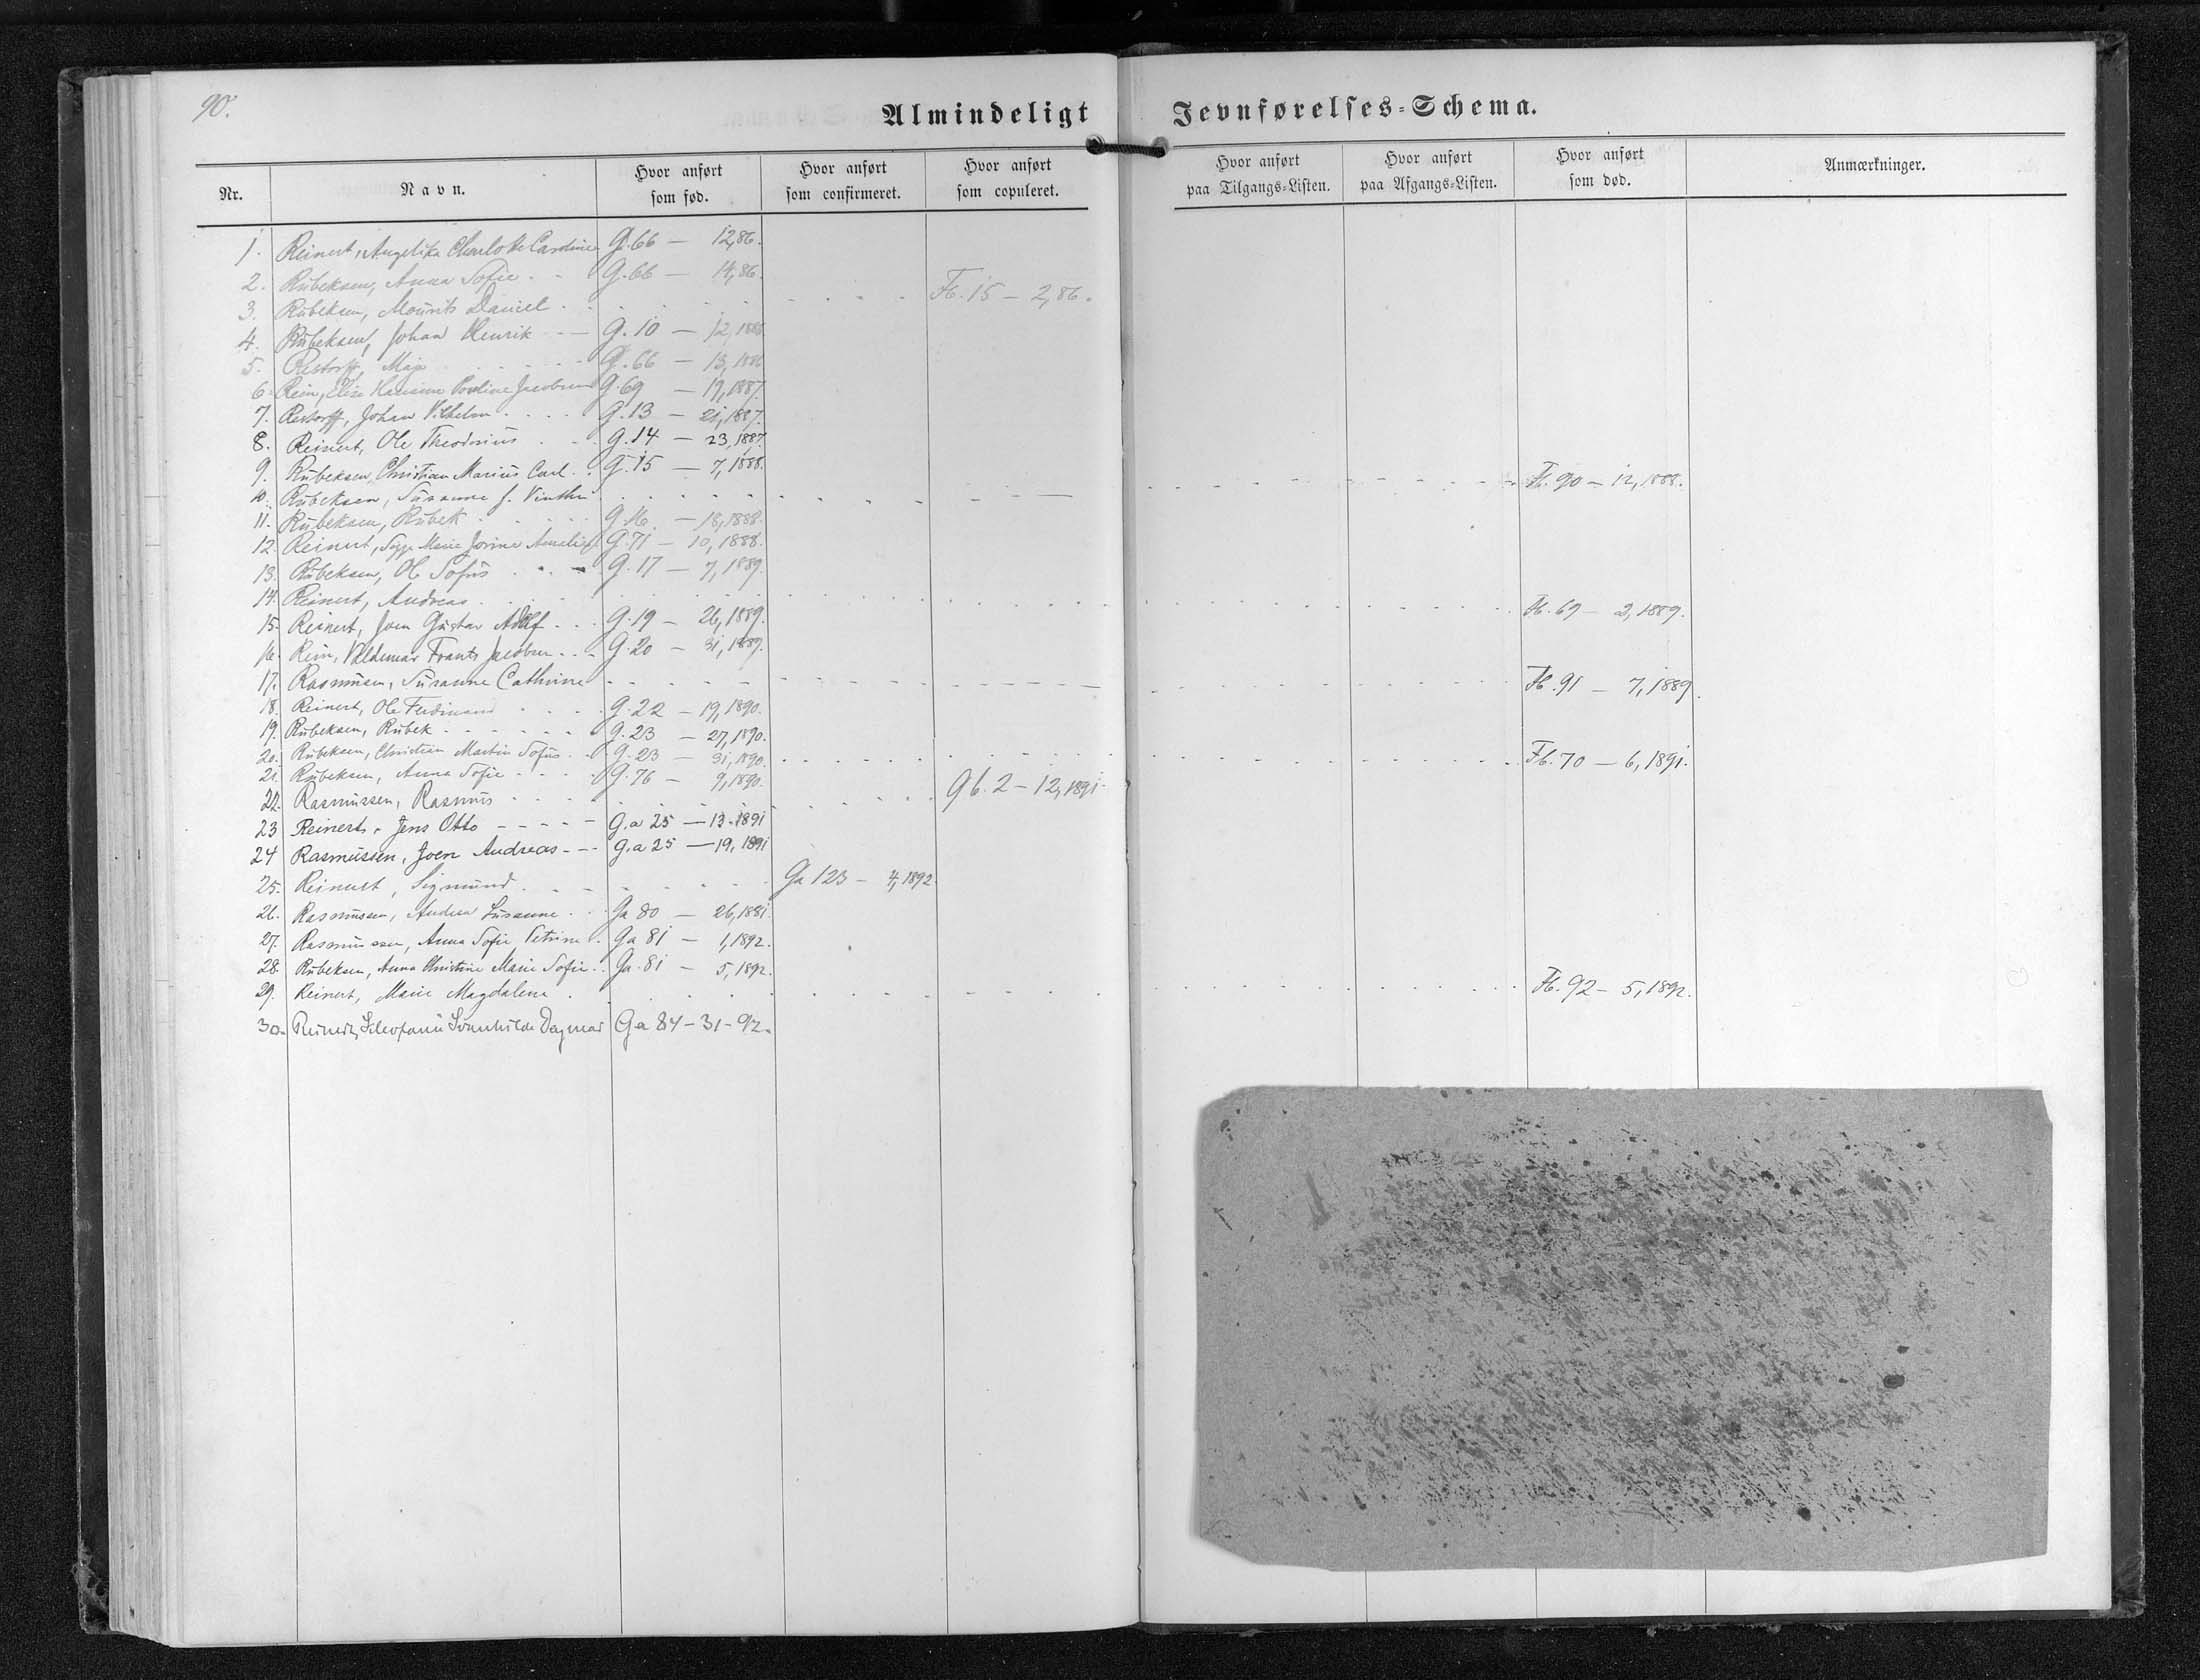 90.
Almindeligt Jevnførelses=Schema.
Nr. Navn. Hvor anført som fød. Hvor anført som confirmeret. Hvor anført som copuleret. Hvor anført paa Tilgangs=Listen. Hvor anført paa Afgangs=Listen. Hvor anført som død. Anmærkninger.
1. Reinert, Angelika Charlotte Cardine G. 66 — 12,86.
2. Rubeksen, Anna Sofie - - G. 66 — 14,86.
3. Rubeksen, Mourits Daniel - - - Fb. 15 — 2,86.
4. Rubeksen, Johan Henrik - — G. 10 — 12, 1886
5. Restorff, - - - G. 66 — 13, 1886
6. Rein, Elise Pouline Jacobine G. 69 — 19, 1887.
7. Restorff, Johan Vilhelm - - - G. 13 — 21, 1887.
8. Reinert, Ole Theodorius - - G. 14 — 23, 1887.
9. Rubeksen, Christian Marius Carl. G. 15 — 7, 1888.
10. Rubeksen, Susanne f. Vinther - - - Fb. 90 — 12, 1888.
11. Rubeksen, Rubek - - - G. 16. — 18, 1888.
12. Reinert, Marie G. 71 — 10, 1888.
13. Rubeksen, Ole Sofus - - - G. 17 — 7, 1889.
14. Reinert, Andreas - - - Fb. 69 — 2, 1889.
15. Reinert, Joen Gustav Adolf - - - G. 19 — 26, 1889.
16. Rein, Valdemar Frants Jacobsen - - - G. 20 — 31, 1889.
17. Rasmusen, Susanne Cathrine - - - Fb. 91 — 7, 1889.
18. Reinert, Ole Ferdinand - - - G. 22 — 19, 1890.
19. Rubeksen, Rubek - - - G. 23 — 27, 1890.
20. Rubeksen, Christian Martin Sofus - - G. 23 — 31, 1890. - - - Fb. 70 — 6, 1891.
21. Rubeksen, Anna Sofie - - - G. 76 — 9, 1890.
22. Rasmussen, Rasmus - - - Gb. 2 — 12, 1891.
23 Reinert, Jens Otto - - - - - G.a 25 — 13. 1891
24 Rasmussen, Joen Andreas - - - G.a 25 — 19, 1891
25. Reinert, Sigmund - - - Ga 123 — 4, 1892.
26. Rasmussen, Andrea Susanne - - Ga 80 — 26, 1891.
27. Rasmussen, Anna Sofie Petrine - Ga 81 — 1, 1892.
28. Rubeksen, Anna Christine Marie Sofie - Ga. 81 — 5, 1892.
29. Reinert, Marie Magdalene - - - Fb. 92 — 5, 1892.
30. Reinert, Dagmar Ga 84 - 31 - 92.